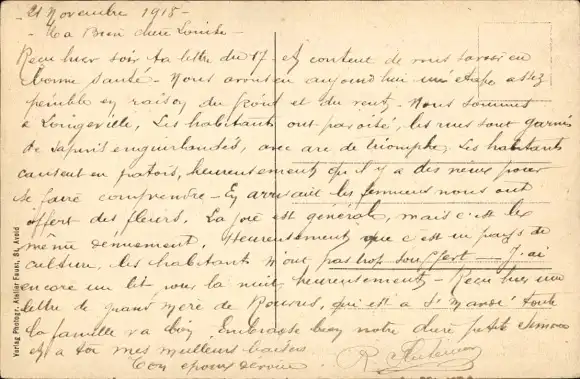 21 Novembre 1918 -
- Ma Bien chère Louise -
Reçu hier soir ta lettre du 17 - et content de vous savoir en
bonne santé - Nous avons eu aujourd'hui une étape assez
pénible en raison du froid et du vent - Nous sommes
à Longeville, Les habitants ont pavoisé, les rues sont garnies
de sapins enguirlandés, avec arc de triomphe. Les habitants
causent en patois, heureusement qu'il y a des vieux pour
se faire comprendre - En arrivant les femmes nous ont
offert des fleurs. La joie est générale, mais c'est le
même dénuement. Heureusement que c'est un pays de
culture, les habitants n'ont pas trop souffert - J'ai
encore un lit pour la nuit, heureusement - Reçu hier une
lettre de grand mère de qui est à St Mandé toute
la famille va bien, Embrasse bien notre chère petite Simone
et à toi mes meilleurs baisers
Ton époux dévoué
R.
Verlag Photogr. Atelier Faust, St. Avold